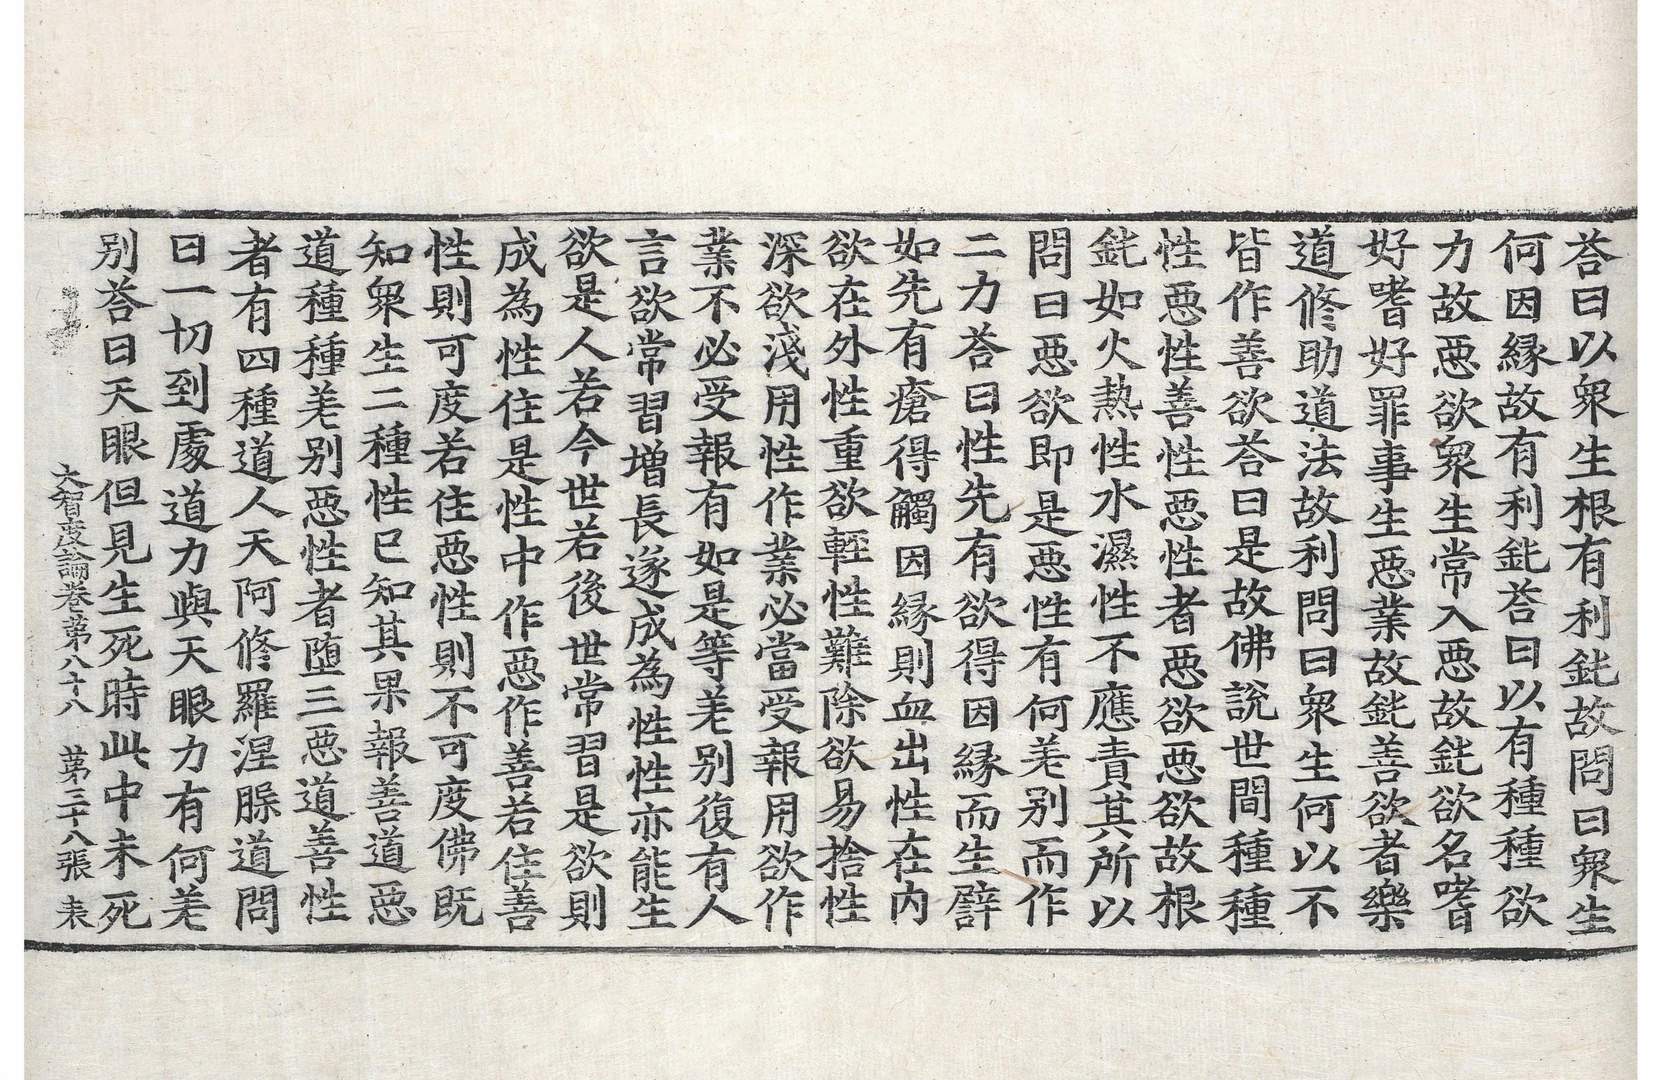 荅曰以衆生根有利鈍故問曰衆生
何因緣故有利鈍荅曰以有種種欲
力故惡欲衆生常入惡故鈍欲名嗜
好嗜好罪事生惡業故鈍善欲者樂
道修助道法故利問曰衆生何以不
皆作善欲荅曰是故佛說世間種種
性惡性善性惡性者惡欲惡欲故根
鈍如火熱性水濕性不應責其所以
問曰惡欲即是惡性有何差別而作
二力荅曰性先有欲得因緣而生譬
如先有瘡得觸因緣則血出性在內
欲在外性重欲輕性難除欲易捨性
深欲淺用性作業必當受報用欲作
業不必受報有如是等差別復有人
言欲常習增長遂成為性性亦能生
欲是人若今世若後世常習是欲則
成為性住是性中作惡作善若住善
性則可度若住惡性則不可度佛既
知衆生二種性已知其果報善道惡
道種種差別惡性者墮三惡道善性
者有四種道人天阿修羅涅槃道問
曰一切到處道力與天眼力有何差
別荅曰天眼但見生死時此中未死
大智度論卷第八十八 第三十八張 表